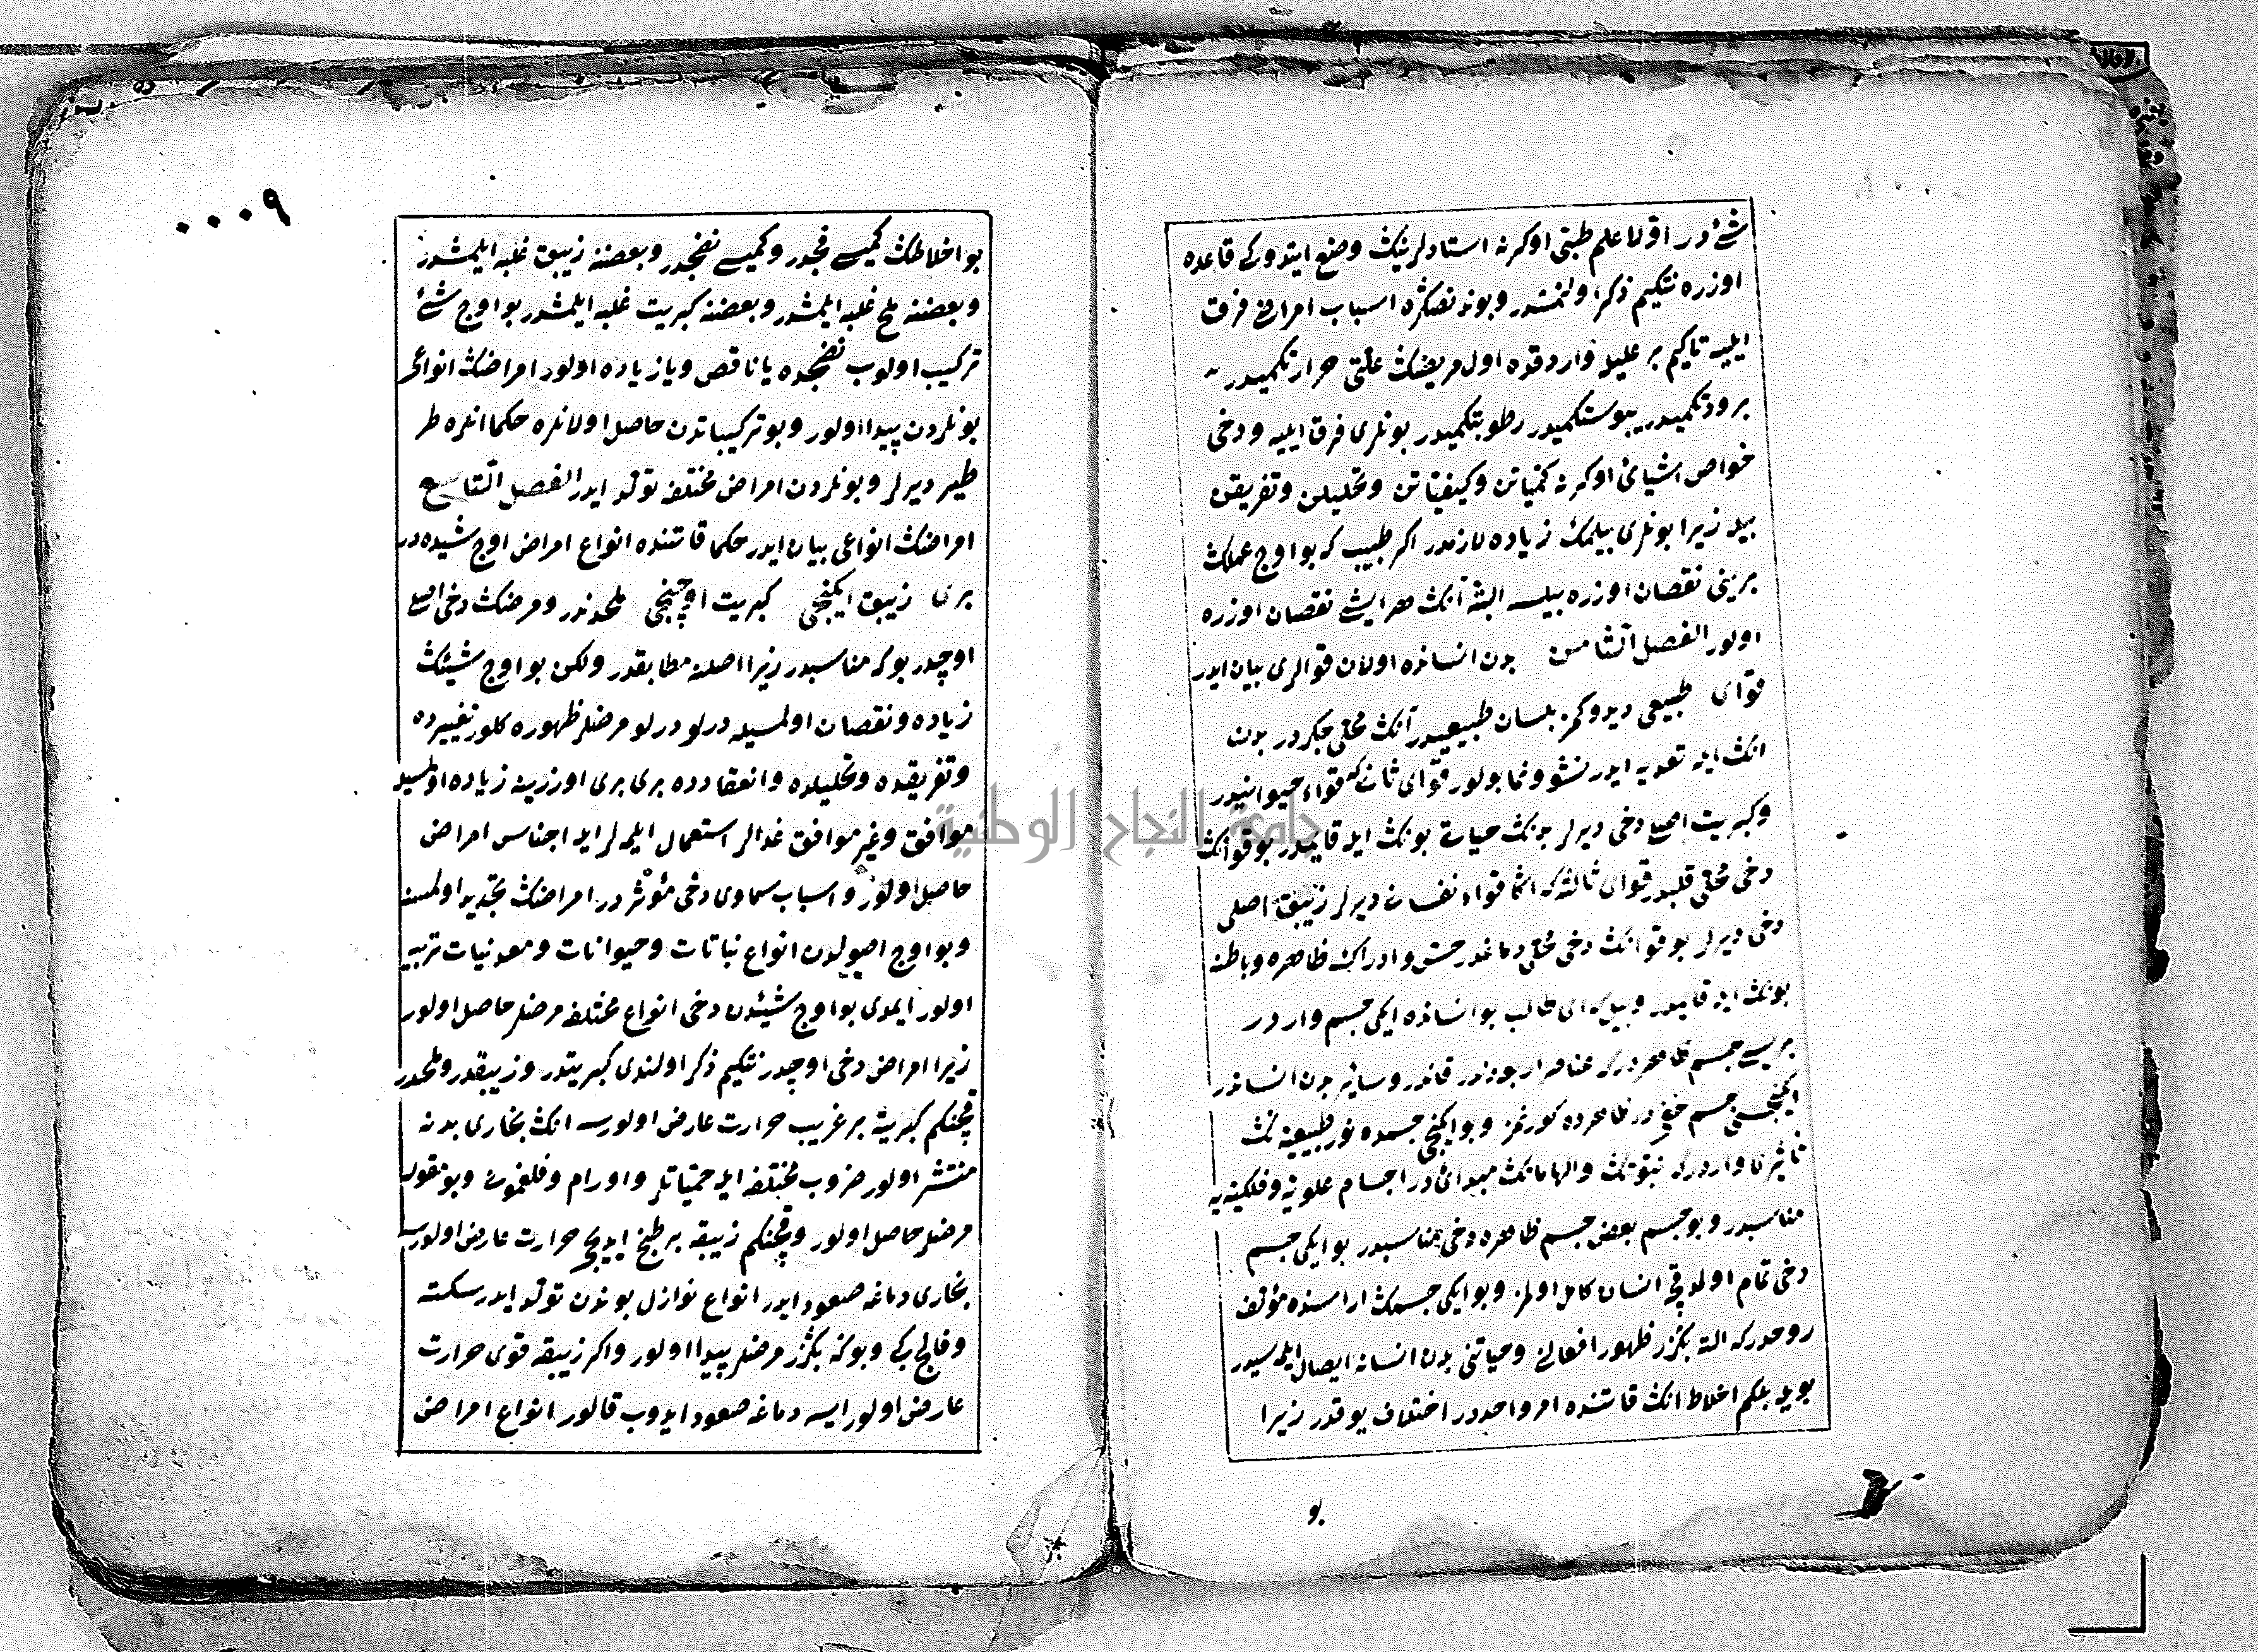 شئ در اولا علم طبی اوکرنه استادلرینك وضع ایتدوکی قاعده
اوزره نتکیم ذکر اولنمشدر وبوندنصکره اسباب امراضی فرق
ایلیه تاکیم بر علیله واردقده اول مریضك علتی حرارتکمیدر
برودتکمیدر یبوستکمیدر رطوبتکمیدر بونلری فرق ایلیه ودخی
خواص اشیائی اوکرنه کمیاتن وکیفیاتن وتحلیلن وتفریقن
بیله زیرا بونلری بیلمك زیاده لازمدر اکر طبیب که بو اوج عملك
برینی نقصان اوزره بیلسه البته آنك هر ایشی نقصان اوزره
اولور الفصل الثامن بدن انسانده اولان قوالری بیان ایدر
قوای طبیعی دیدوکمز بلسان طبیعیدر آنك محلی جکردر بدن
انك ایله تغدیه ایدر نشو ونما بولور قوای ثانی که قواء حیوانیدر
وکبریت اصلی دخی دیرلر بدنك حیاتی بونك ایله قایمدر بو قوانك
دخی محلی قلبدر قوای ثالثه که اکا قواء نفسانی دیرلر زیبق اصلی
دخی دیرلر بو قوانك دخی محلی دماغدر حس وادراك ظاهره وباطنه
بونك ایله قایمدر وبیل که ای طالب بو انسانده ایکی جسم واردر
بریسی جسم ظاهردر که عناصر اربعه در قاندر وسایر بدن انساندر
ایکنجی جسم خفیدر ظاهرده کورنمز وبو ایکنجی جسمده نور طبیعیه نك
تاثیری واردر که نبوتك والهاماتك مبدائ در اجسام علویه وفلکیه یه
مناسبدر وبو جسم بعض جسم ظاهره دخی مناسبدر بو ایکی جسم
دخی تمام اولمدقجه انسان کامل اولمز وبو ایکی جسمك اراسنده مؤلف
روحدرکه الته بکزر ظهور افعالی وحیاتی بدن انسانه ایصال ایلمسیدر
بویله بلکم اخلاط انك قاتنده امر واحددر اختلاف یوقدر زیرا
بو
٠٠٠٩
بو اخلاطك کمیسی فجدر وکمیسی نضجدر وبعضنه زیبق غلبه ایلمشدر
وبعضنه ملح غلبه ایلمشدر وبعضنه کبریت غلبه ایلمشدر بو اوج شئ
ترکیب اولوب نضجده یا ناقص ویا زیاده اولور امراضك انواعی
بونلردن پیدا اولور وبو ترکیباتدن حاصل اولانلره حکما انلره طر
طیر دیرلر وبونلردن امراض مختلفه تولد ایدر الفصل التاسع
امراضك انواعی بیان ایدر حکما قاتنده انواع امراض اوج شیده در
بری زیبق ایکنجی کبریت اوچنجی ملحدندر ومرضك دخی اصلی
اوچدر بوکه مناسبدر زیرا اصلنه مطابقدر ولکن بو اوج شیئك
زیاده ونقصان اولمسیله درلو درلو مرضلر ظهوره کلور تغییرده
وتفریقده وتحلیلده وانعقادده بری بری اوزرینه زیاده اولمسیله
موافق وغیر موافق غدالر استعمال ایلمه لر ایله اجناس امراض
حاصل اولور واسباب سماوی دخی مؤثردر امراضك تجدید اولمسنه
وبو اوج اصولدن انواع نباتات وحیوانات ومعدنیات تربیه
اولور ایمدی بو اوج شیئدن دخی انواع مختلفه مرضلر حاصل اولور
زیرا امراض دخی اوچدر نتکیم ذکر اولندی کبریتدر وزیبقدر وملحدر
قچنکم کبریته بر غریب حرارت عارض اولورسه انك بخاری بدنه
منتشر اولور ضروب مختلفه ایله حمیاتلر واورام وفلغمونی وبو مقوله
مرضلر حاصل اولور وقچنکم زیبقه بر طبخ ایدیجی حرارت عارض اولورسه
بخاری دماغه صعود ایدر انواع نوازل بوندن تولد ایدر سکته
وفالج کبی وبوکه بکزر مرضلر پیدا اولور واکر زیبقه قوی حرارت
عارض اولور ایسه دماغه صعود ایدوب قالور انواع امراض
جامعة النجاح الوطنية